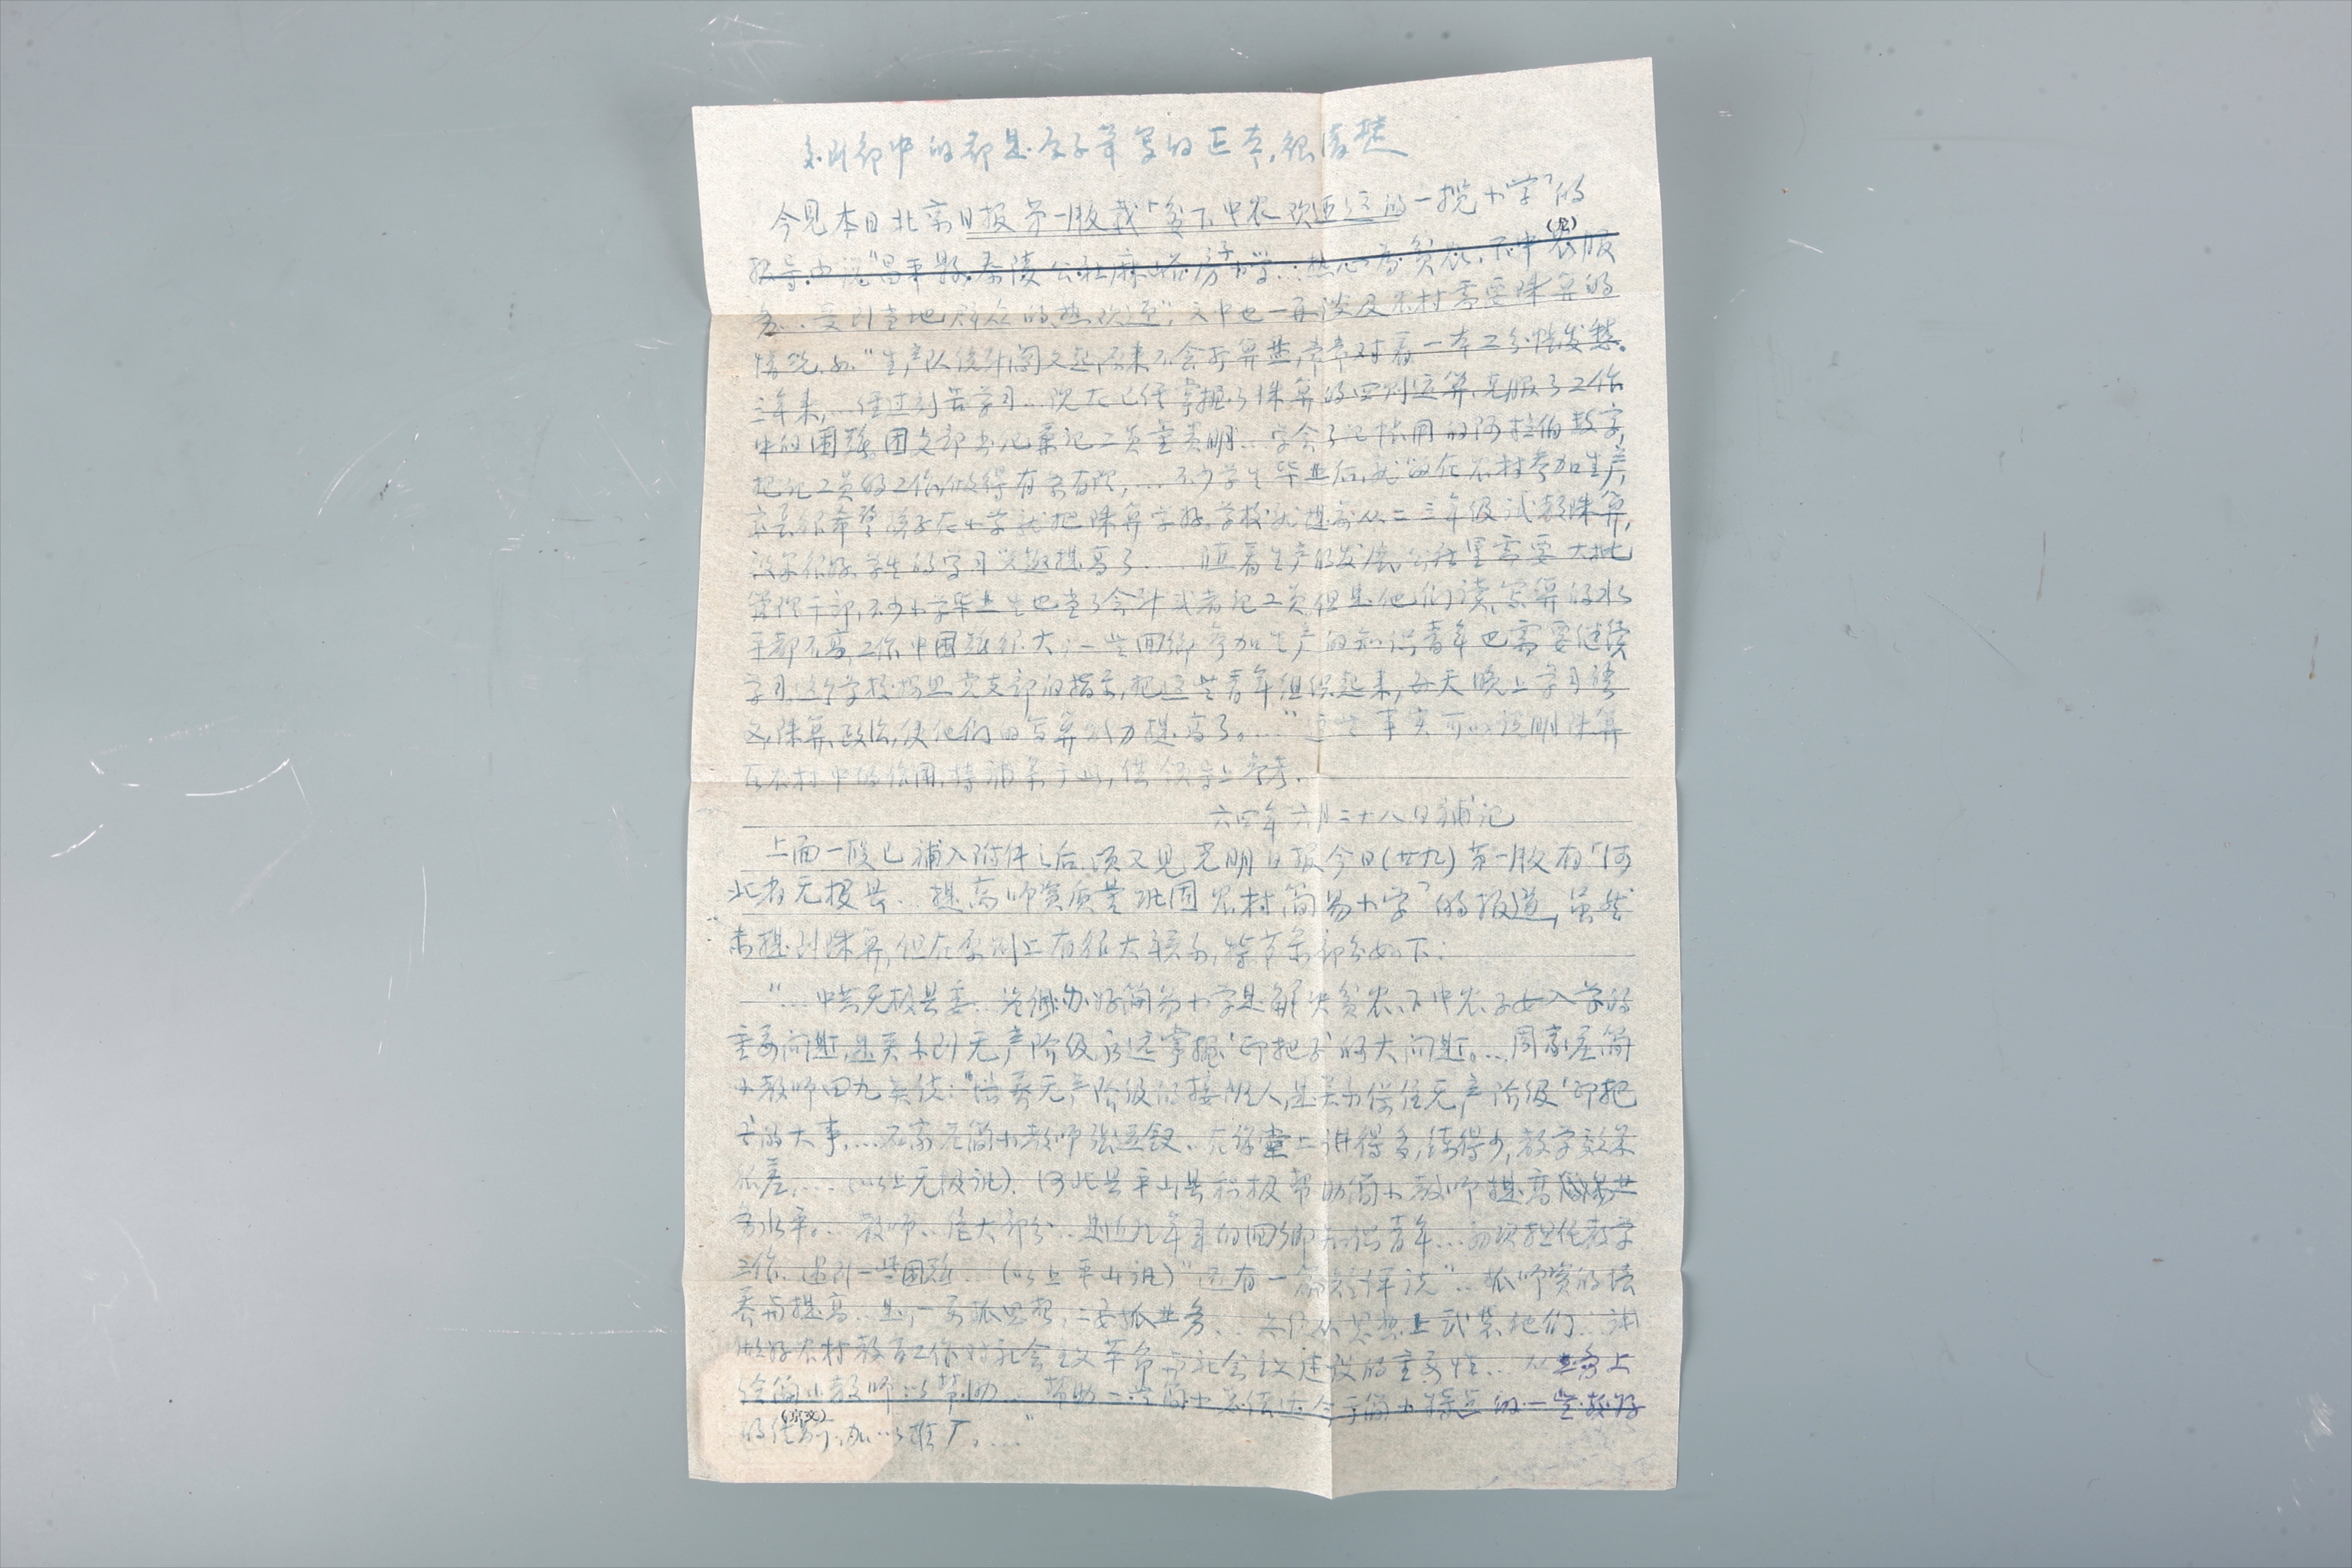 到部中的都是原子笔写的正本,很清楚
今见本日北京日报第一版载「贫下中农欢迎这的一揽小学」的
报导,也说"昌平县泰陵公社麻峪房子小学…热心为贫农、下中农服
务…受到当地群众的热欢迎",文中也一再谈及农村需要珠算的
情况,如"生产队统计阎文起原来不会打算盘,常常对着一本工分帐发愁。
三年来,…经过刻苦学习…现在已经掌握了珠算的四则运算,克服了工作
中的困难。团支部书记兼记工员童贵明…学会了记帐用的阿拉伯数字,
把记工员的工作做得有条有理,…不少学生毕业后,就留在农村参加生产,
家长很希望孩子在小学就把珠算学好。学校就提前从二三年级试教珠算,
效果很好,学生的学习兴趣提高了……随着生产的发展,公社里需要大批
管理干部,不少小学毕业生也当了会计或者记工员,但是他们读、写、算的水
平都不高,工作中困难很大;一些回乡参加生产的知识青年也需要继续
学习。这个学校按照党支部的指示,把这些青年组织起来,每天晚上学习语
文、珠算、政治,使他们的写算能力提高了。…"这些事实可以说明珠算
在农村中的作用,特补录于此,供领导上参考。
六四年六月二十八日补记
上面一段已补入附件之后,顷又见光明日报今日(廿九)第一版有「河
北省无极县、提高师资质量巩固农村简易小学」的报道,虽然
未提到珠算,但在原则上有很大联系,特节录部分如下:
"…中共无极县委…办好简易小学是解决贫农、下中农子女入学的
重要问题,是关系到无产阶级永远掌握'印把子'的大问题。…周家庄简
小教师田九…说:"培养无产阶级的接班人,是关系保住无产阶级'印把
子'的大事,…石家庄简小教师张…在课堂上讲得多,练得少,教学效果
很差,…(以上无极讯)。河北县平山县积极帮助简小教师提高业
务水平。…教师…绝大部分…是近几年来的回乡知识青年…初次担任教学
工作,遇到一些困难…(以上平山讯)"还有一篇短评说"…抓师资的培
养与提高…是,一要抓思想,二要抓业务…从思想上武装他们…讲
做好农村教育工作对社会主义革命与社会主义建设的重要性…从业务上
给简小教师以帮助…帮助…简小…适合于简小特点的一些较好
的经验(原文),加以推广。…"